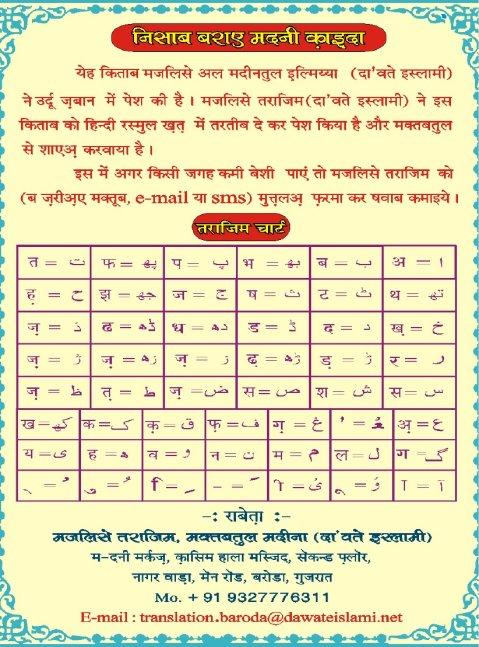 निसाब बराए मदनी क़ाइदा
येह किताब मजलिसे अल मदीनतुल इल्मिय्या (दा'वते इस्लामी)
ने उर्दू ज़बान में पेश की है । मजलिसे तराजिम(दा'वते इस्लामी) ने इस
किताब को हिन्दी रस्मुल ख़त् में तरतीब दे कर पेश किया है और मक्तबतुल
से शाएअ़ करवाया है ।
इस में अगर किसी जगह कमी बेशी पाएं तो मजलिसे तराजिम को
(ब ज़रीअ़ए मक्तूब, e-mail या sms) मुत्त्लअ़ फ़रमा कर षवाब कमाइये ।
तराजिम चार्ट
त = ت फ = پھ प = پ भ = بھ ब = ب अ = ا
ह़ = ح झ = جھ ज = ج ष = ث ट = ٹ थ = تھ
ज़ = ذ ढ = ڈھ ध = دھ ड = ڈ द = د ख़ = خ
ज़ = ژ ज़ = زھ ज़ = ز ढ़ = ڑھ ड़ = ڑ र = ر
ज़ = ظ त़ = ط ज़ = ض स = ص श = ش स = س
ख = کھ क = ک क़ = ق फ़ = ف ग़ = غ ' = ءُ अ़ = ع
य = ی ह = ہ व = و न = ن म = م ल = ل ग = گ
آ = आ
-: राबेता :-
मजलिसे तराजिम, मक्तबतुल मदीना (दा'वते इस्लामी)
म-दनी मर्कज़, क़ासिम हाला मस्जिद, सेकन्ड फ्लोर,
नागर वाड़ा, मेन रोड, बरोडा, गुजरात
Mo. + 91 9327776311
E-mail : translation.baroda@dawateislami.net